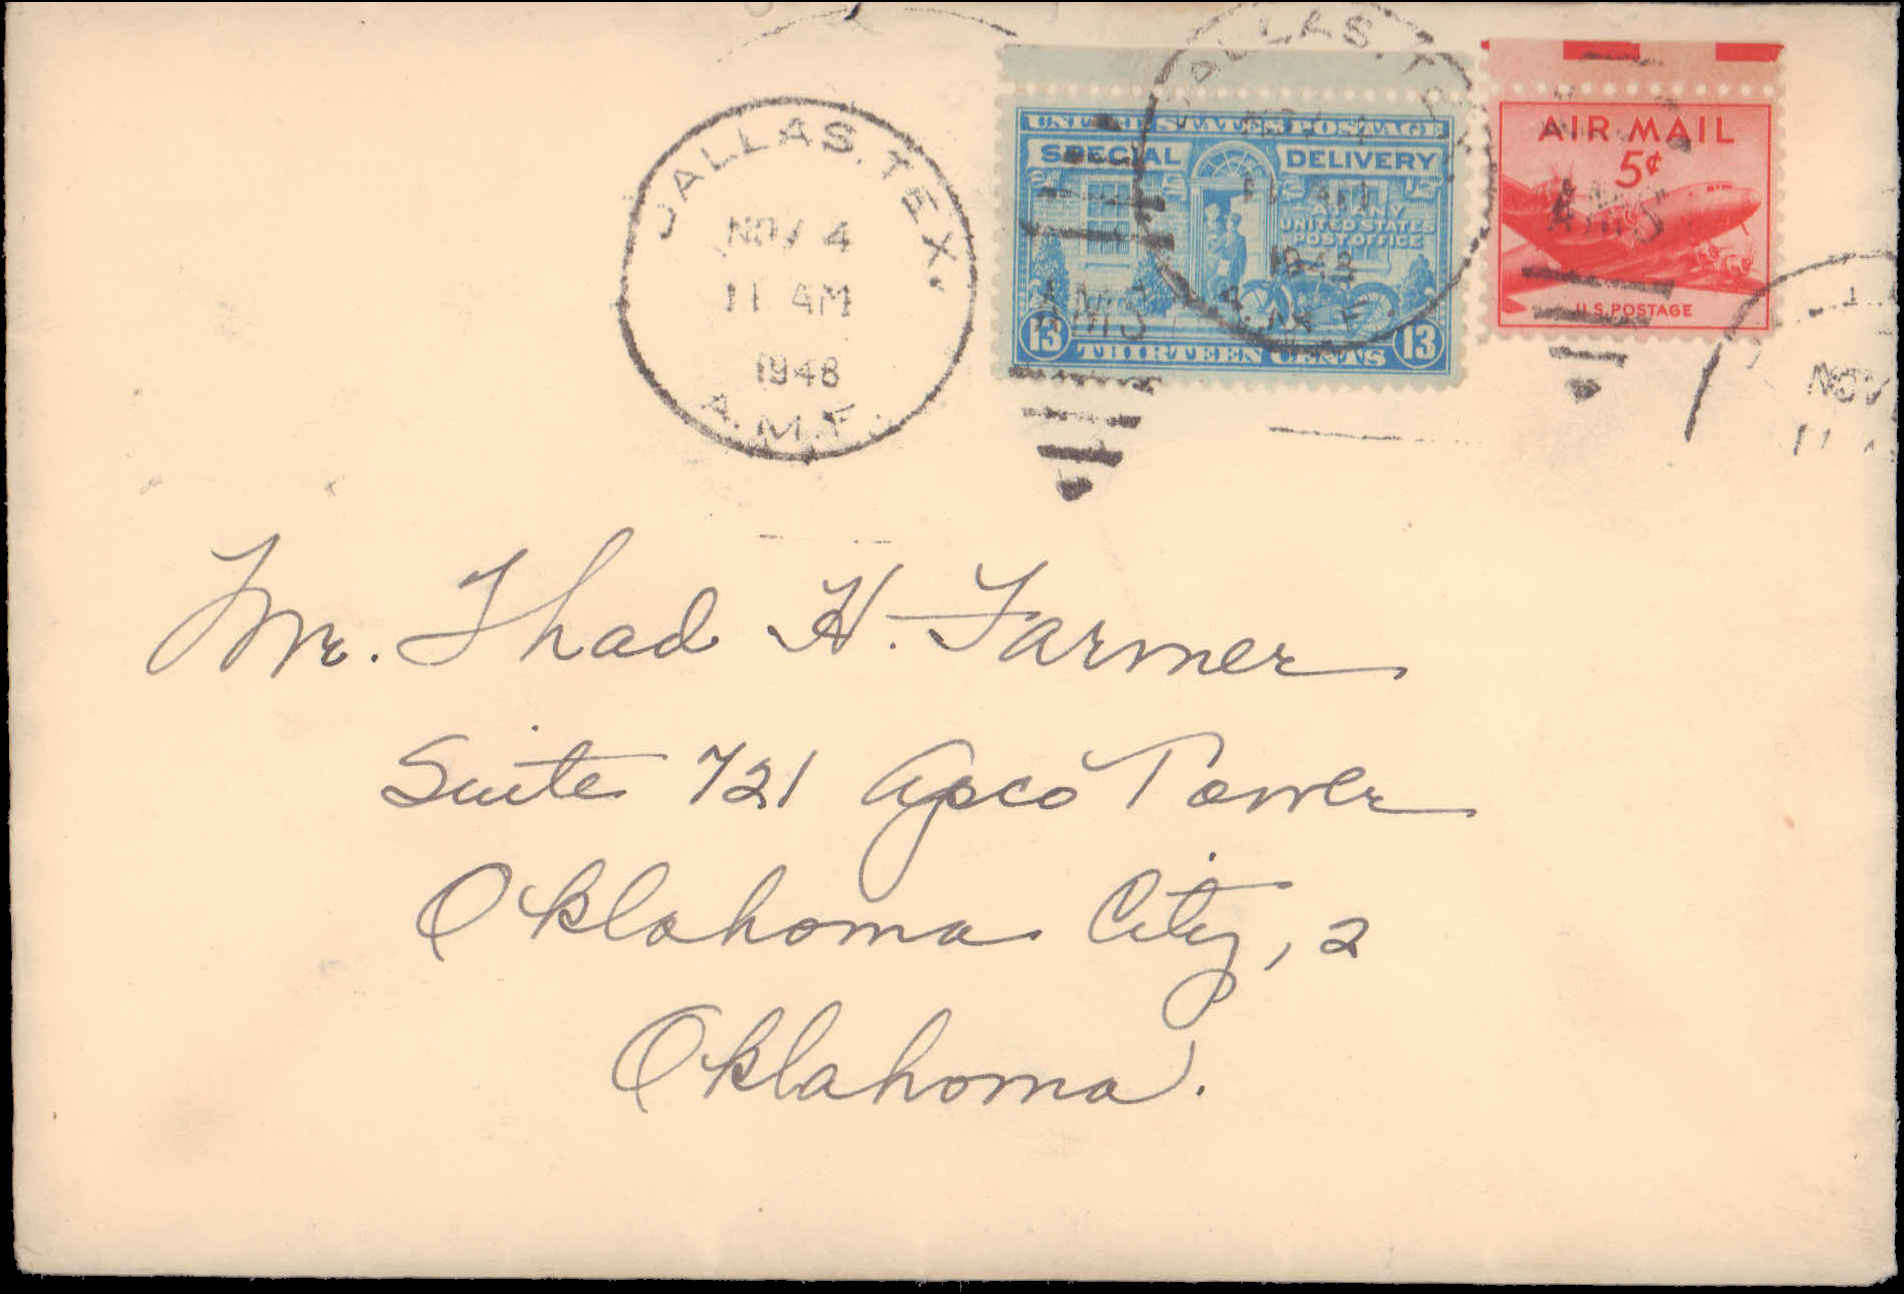 DALLAS, TEX.
NOV 4
11 AM
1948
A.M.F.
UNITED STATES POSTAGE
SPECIAL DELIVERY
AT ANY
UNITED STATES
POST OFFICE
13 THIRTEEN CENTS 13
DALLAS, TEX.
11 AM
1948
A.M.F.
AIR MAIL
5¢
U.S. POSTAGE
NOV
11
Mr. Thad H. Farmer
Suite 721 Apco Tower
Oklahoma City, 2
Oklahoma.